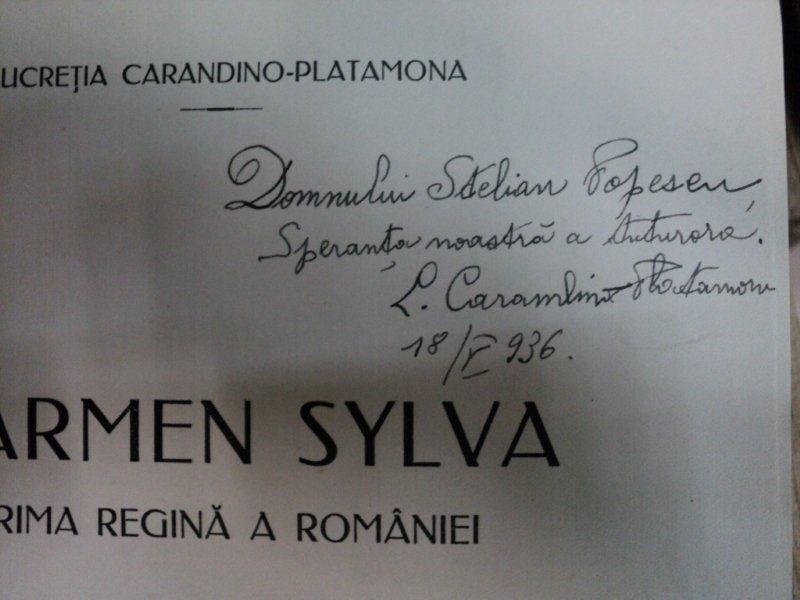 UCREȚIA CARANDINO-PLATAMONA
Domnului Stelian Popescu,
Speranța noastră a tuturora.
L. Carandino-Platamona
18/V 936.
ARMEN SYLVA
RIMA REGINĂ A ROMÂNIEI